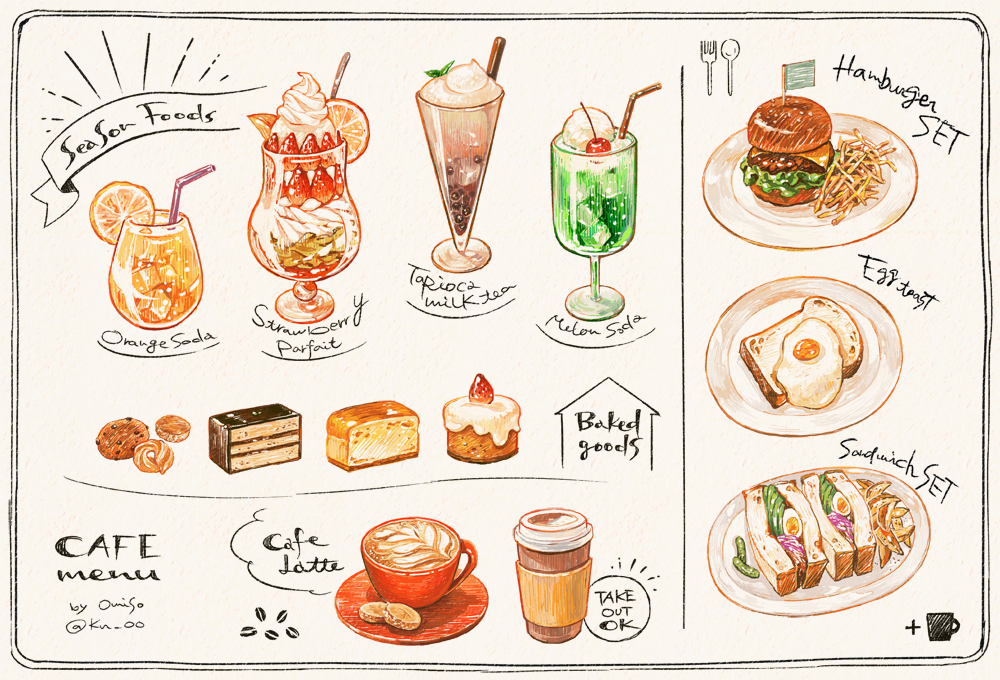 Season Foods
Orange Soda
Strawberry
Parfait
Tapioca
milk tea
Melon Soda
Baked
goods
CAFE
menu
by OmiSo
@Kn_oo
Cafe
Latte
TAKE
OUT
OK
Hamburger
SET
Egg toast
Sandwich SET
+